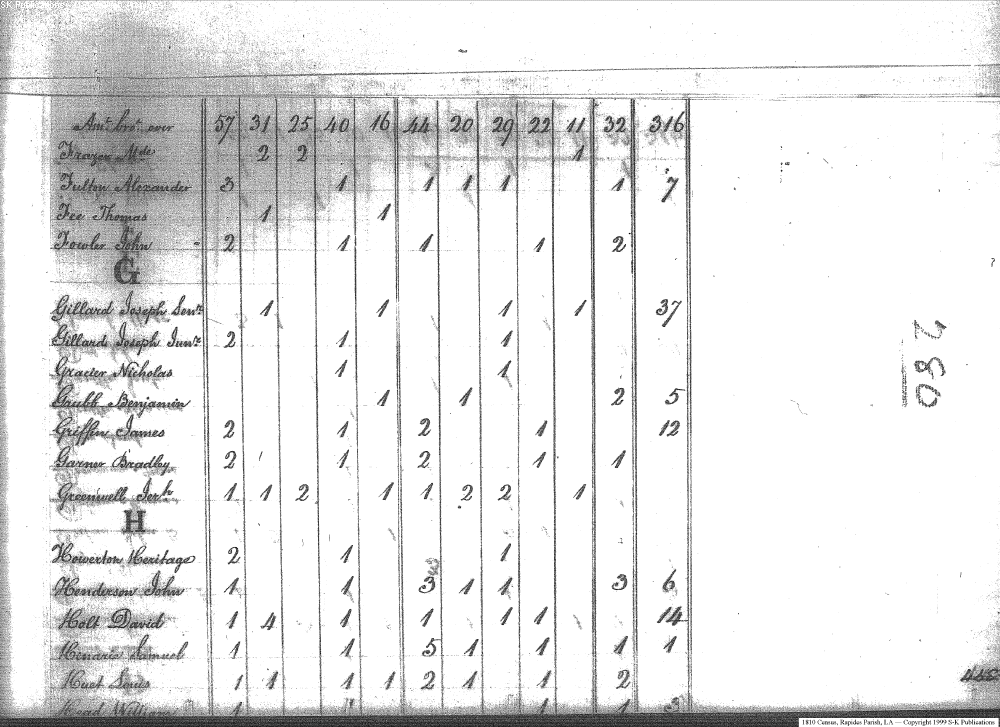 Amt. brot. over 57 31 25 40 16 44 20 29 22 11 32 316
Frazer Mde 2 2 1
Fulton Alexander 3 1 1 1 1 1 7
Fee Thomas 1 1
Fowler John - 2 1 1 1 2
G
Gillard Joseph Senr. 1 1 1 1 37
Gillard Joseph Junr. 2 1 1
Gracier Nicholas 1 1
Grubb Benjamin 1 1 2 5
Griffin James 2 1 2 1 12
Garner Bradley 2 1 2 1 1
Greenwell Jerh 1 1 2 1 1 2 2 1
H
Howerton Heritage 2 1 1
Henderson John 1 1 3 1 1 3 6
Holt David 1 4 1 1 1 1 14
Samuel 1 1 5 1 1 1 1
Huet Louis 1 1 1 1 2 1 1 2
Head William 1 1 1 1 3
280
1810 Census, Rapides Parish, LA — Copyright 1999 S-K Publications